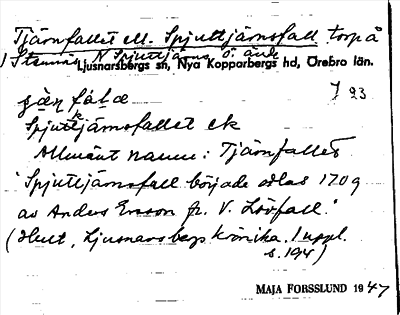 Tjärnfallet ell. Spjuttjärnsfall torp å
Stennäs N Spjuttjärns ö. ände
Ljusnarsbergs sn, Nya Kopparbergs hd, Örebro län.
7 93
Spjuttjärnsfallet ek
Allmänt namn: Tjärnfallet
"Spjuttjärnsfall började odlas 1709
av Anders Ersson fr. V. Lövfall."
(Hult, Ljusnarsbergs krönika, 1 uppl.
s. 194)
MAJA FORSSLUND 1947